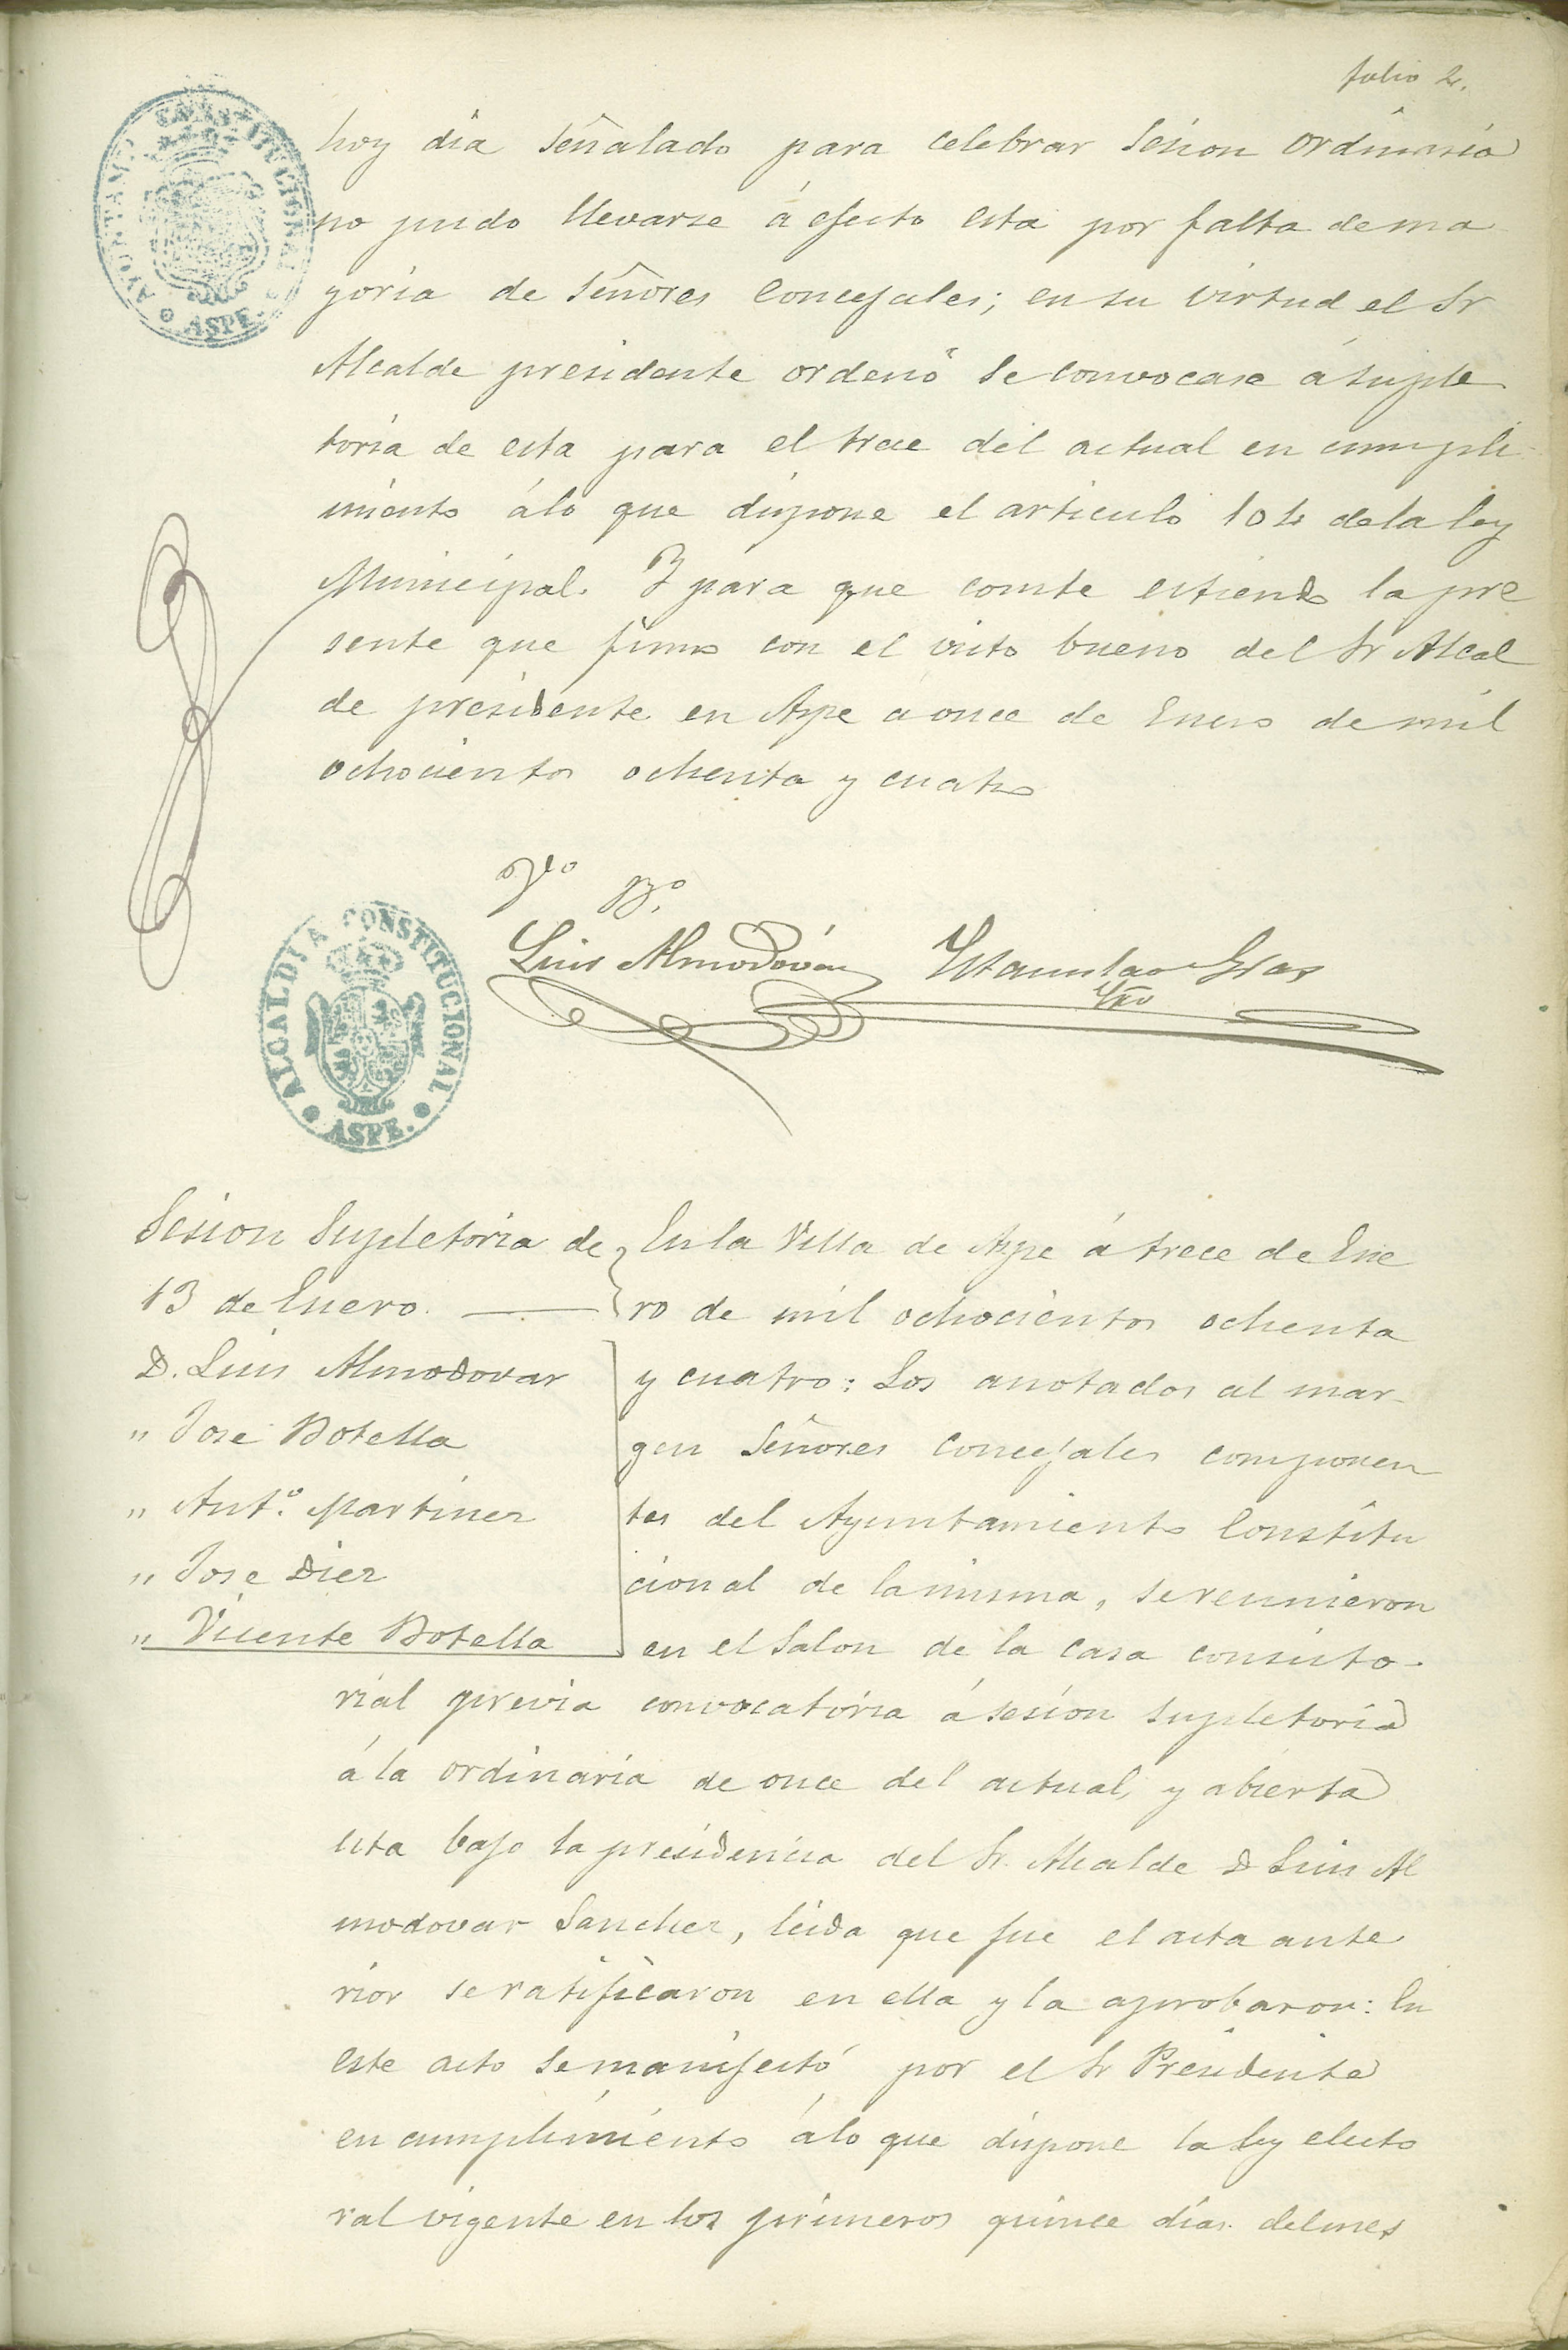 folio 2.
AYUNTAMTO CONSTITUCIONAL
ASPE.
hoy dia señalado para celebrar Sesion Ordinaria
no pudo llevarse á efecto esta por falta de ma
yoria de Señores Concejales; en su virtud el Sr
Alcalde presidente ordenó se convocase á suple
toria de esta para el trece del actual en cumpli
miento álo que dispone el articulo 104 dela ley
Municipal. Y para que conste estiendo la pre
sente que firmo con el visto bueno del Sr Alcal
de presidente en Aspe á once de Enero de mil
ochocientos ochenta y cuatro
Vto Bo.
Luis Almodóvar Estanislao Gras
Srio
ALCALDIA CONSTITUCIONAL
ASPE.
Sesion Supletoria de
13 de Enero.
D. Luis Almodovar
" Jose Botella
" Anto. Martinez
" Jose Diez
" Vicente Botella
En la Villa de Aspe á trece de Ene
ro de mil ochocientos ochenta
y cuatro: Los anotados al mar-
gen Señores Concejales componen
tes del Ayuntamiento Constitu
cional de la misma, se reunieron
en el Salon de la casa consisto-
rial previa convocatoria á sesion supletoria
á la ordinaria de once del actual, y abierta
esta bajo la presidencia del Sr. Alcalde D Luis Al
modovar Sanchez, leida que fue el acta ante
rior se ratificaron en ella y la aprobaron: En
este acto se manifestó por el Sr Presidente
en cumplimiento álo que dispone la ley electo
ral vigente en los primeros quince dias del mes